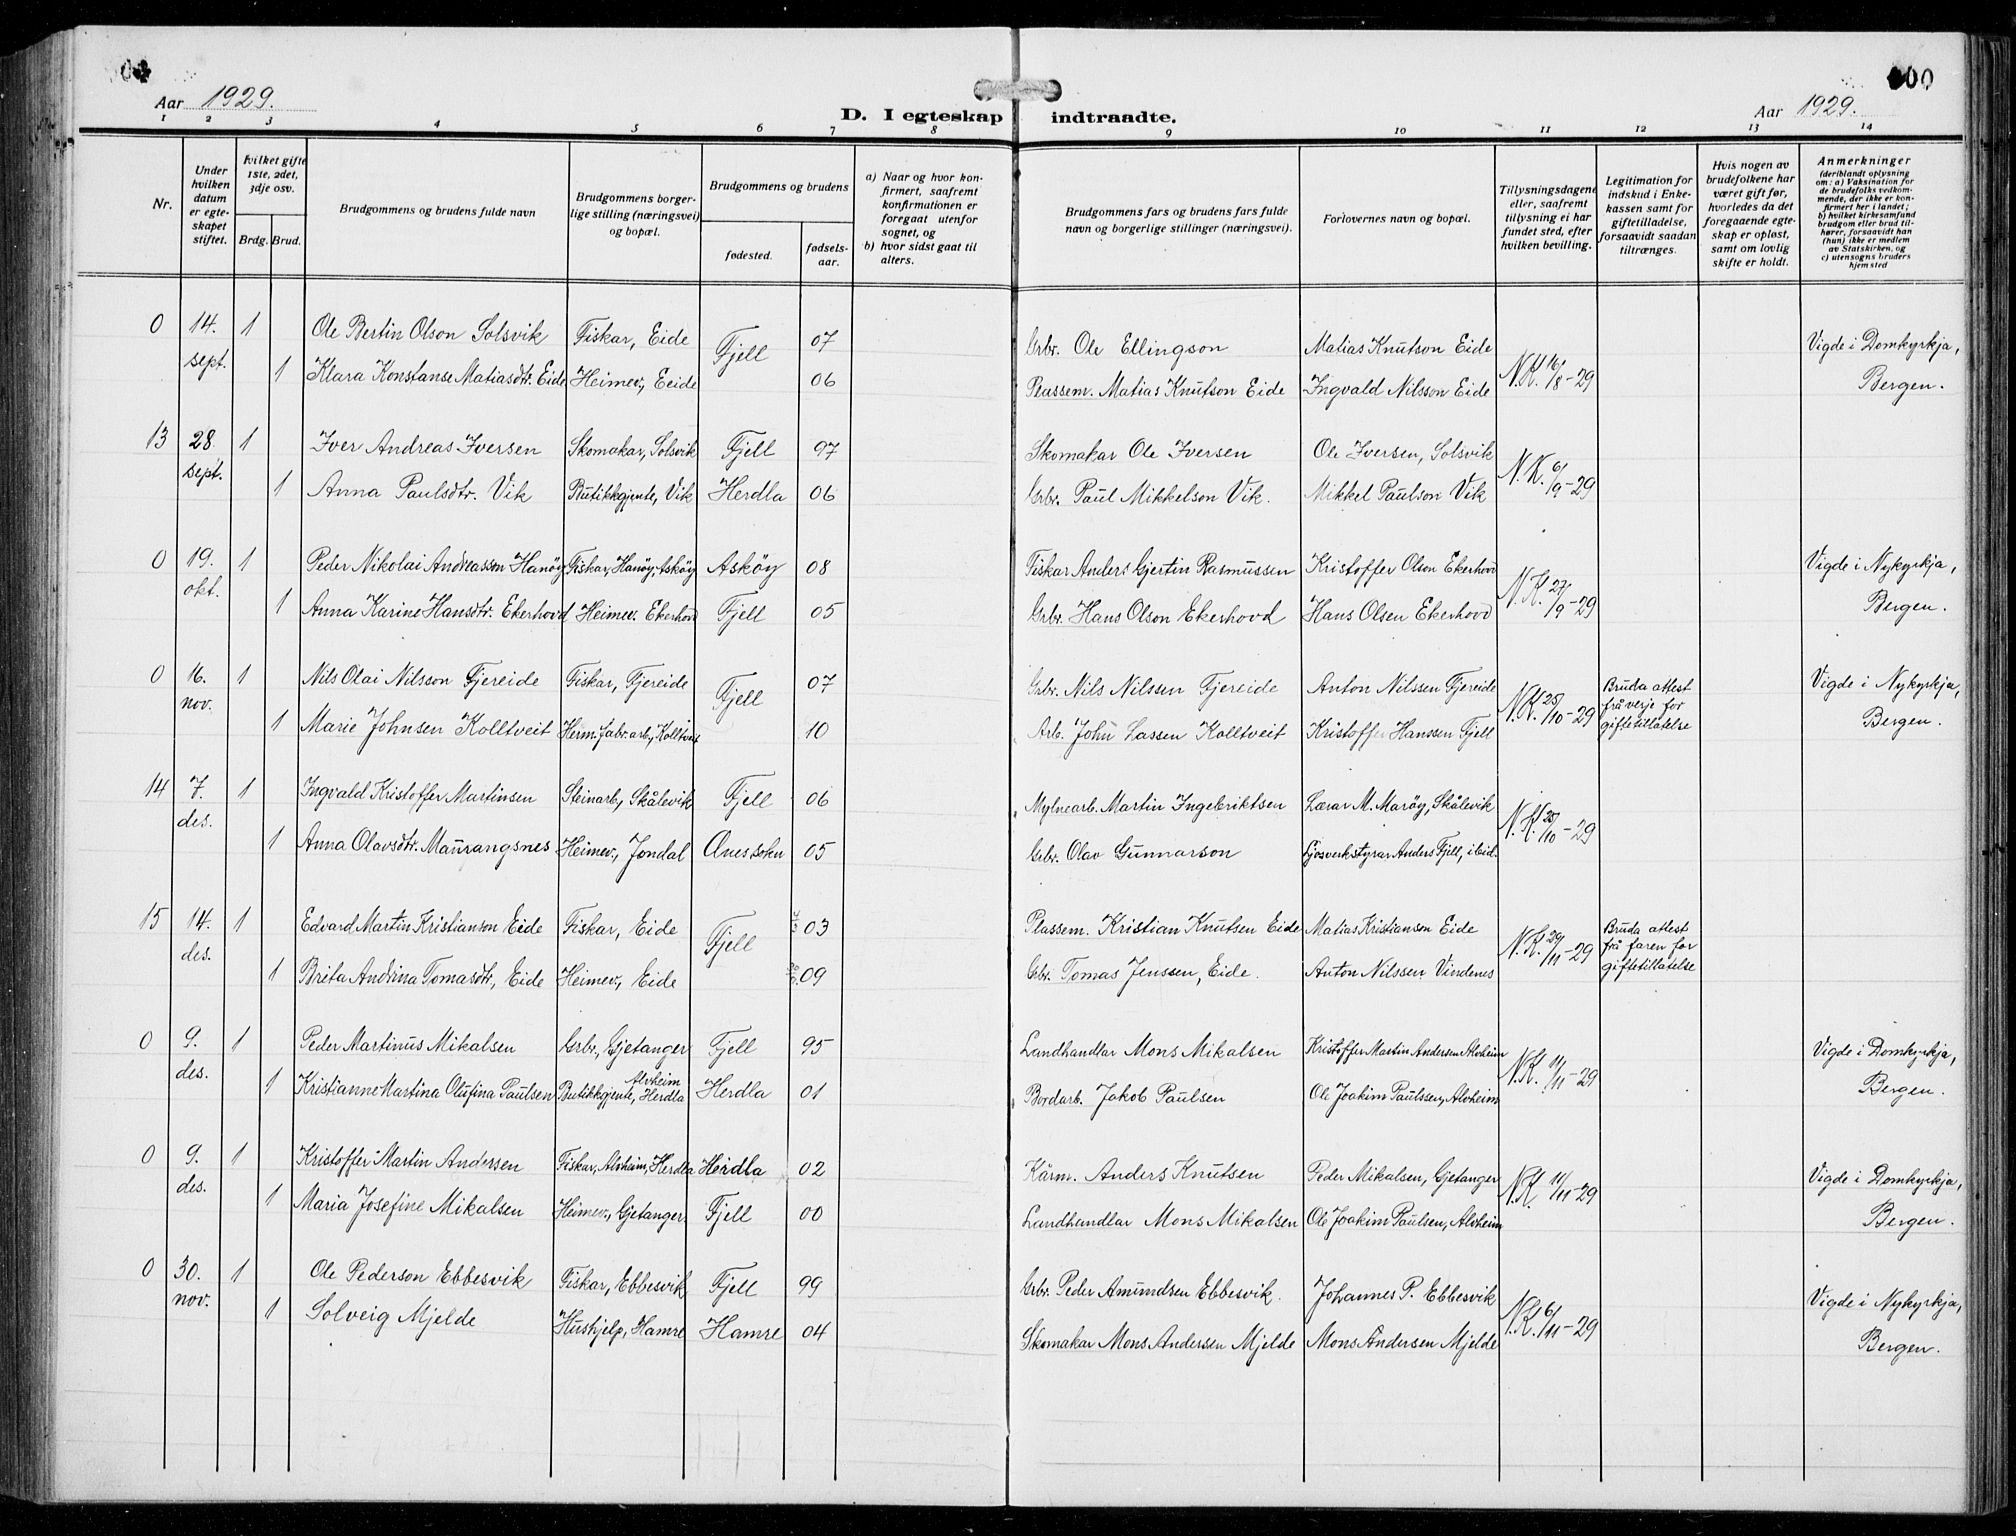 Aar 1929.
D. I egteskap indtraadte.
Aar 1929.
00
1 2 3 4 5 6 7 8 9 10 11 12 13 14
Nr.
Under hvilken datum er egteskapet stiftet.
hvilket gifte 1ste, 2det, 3dje osv.
Brdg. Brud.
Brudgommens og brudens fulde navn
Brudgommens borgerlige stilling (næringsvei) og bopæl.
Brudgommens og brudens
fødested.
fødselsaar.
a) Naar og hvor konfirmert, saafremt konfirmationen er foregaat utenfor sognet, og
b) hvor sidst gaat til alters.
Brudgommens fars og brudens fars fulde navn og borgerlige stillinger (næringsvei).
Forlovernes navn og bopæl.
Tillysningsdagene eller, saafremt tillysning ei har fundet sted, efter hvilken bevilling.
Legitimation for indskud i Enkekassen samt for giftetilladelse, forsaavidt saadan tiltrænges.
Hvis nogen av brudefolkene har været gift før, hvorledes da det foregaaende egteskap er opløst, samt om lovlig skifte er holdt.
Anmerkninger (deriblandt oplysning om: a) Vaksination for de brudefolks vedkommende, der ikke er konfirmert her i landet; b) hvilket kirkesamfund brudgom eller brud tilhører, forsaavidt han (hun) ikke er medlem av Statskirken, og c) utensogns bruders hjemsted
0 14. sept. 1 Ole Bertin Olson Solsvik Fiskar, Eide Fjell 07 Grbr. Ole Ellingson Matias Knutson Eide N.K. 16/8-29 Vigde i Domkyrkja, Bergen.
1 Klara Konstanse Matiasdtr. Eide Heimev., Eeide 06 Plassem. Matias Knutson Eide Ingvald Nilsson Eide
13 28 sept. 1 Iver Andreas Iversen Skomakar, Solsvik Fjell 97 Skomakar Ole Iversen Ole Iversen, Solsvik N.K. 6/9-29
1 Anna Paulsdtr. Vik Butikkgjente, Vik Herdla 06 Grbr. Paul Mikkelson Vik. Mikkel Paulson Vik
0 19. okt. 1 Peder Nikolai Andreassen Hanøy Fiskar, Hanøy, Askøy Askøy 08 Fiskar Anders Gjertin Rasmussen Kristoffer Olson Ekerhovd N.K. 27/9-29 Vigde i Nykyrkja, Bergen.
1 Anna Karine Hansdtr. Ekerhovd Heimev. Ekerhovd Fjell 05 Grbr. Hans Olson Ekerhovd Hans Olsen Ekerhovd
0 16. nov. 1 Nils Olai Nilsson Fjereide Fiskar, Fjereide Fjell 07 Grbr. Nils Nilssen Fjereide Anton Nilssen Fjereide N.K. 25/10-29 Bruda attest frå verje for giftetillatelse Vigde i Nykyrkja, Bergen.
1 Marie Johnsen Kolltveit Herm. fabr. arb., Kolltveit 10 Arb. John Lassen Kolltveit Kristoffer Hanssen Fjell
14 7. des. 1 Ingvald Kristoffer Martinsen Steinarb, Skålevik Fjell 06 Mylnearb. Martin Ingebriktsen Lærar M. Marøy, Skålevik N.K. 25/10-29
1 Anna Olavsdtr. Maurangsnes Heimev., Jondal 05 Grbr. Olav Gunnarson Ljosverkstyrar Anders Fjell, ibid.
15 14. des. 1 Edvard Martin Kristianson Eide Fiskar, Eide Fjell 03 Plassem. Kristian Knutsen Eide Matias Kristianson Eide N.K. 29/11-29 Bruda attest frå faren for giftetillatelse
1 Brita Andrina Tomasdtr, Eide Heimev., Eide 09 Grbr. Tomas Jenssen, Eide. Anton Nilssen Vindenes
0 9. des. 1 Peder Martinus Mikalsen Grbr., Gjetanger Fjell 95 Landhandlar Mons Mikalsen Kristoffer Martin Andersen Alvheim N.K. 11/11-29 Vigde i Domkyrkja, Bergen.
1 Kristianne Martina Olufina Paulsen Butikkgjente, Alvheim Herdla Herdla 01 Bordarb. Jakob Paulsen Ole Joakim Paulssen, Alvheim
0 9. des. 1 Kristoffer Martin Andersen Fiskar, Alvheim, Herdla Herdla 02 Kårm. Anders Knutsen Peder Mikalsen, Gjetanger N.K. 11/11-29 Vigde i Domkyrkja, Bergen.
1 Maria Josefine Mikalsen Heimev., Gjetanger. Fjell 00 Landhandlar Mons Mikalsen Ole Joakim Paulsen, Alvheim
0 30. nov. 1 Ole Pederson Ebbesvik Fiskar, Ebbesvik Fjell 99 Grbr. Peder Amundsen Ebbesvik. Johannes P. Ebbesvik N.K. 6/11-29 Vigde i Nykyrkja, Bergen.
1 Solveig Mjelde Hushjelp, Hamre Hamre 04 Skomakar Mons Andersen Mjelde Mons Andersen Mjelde